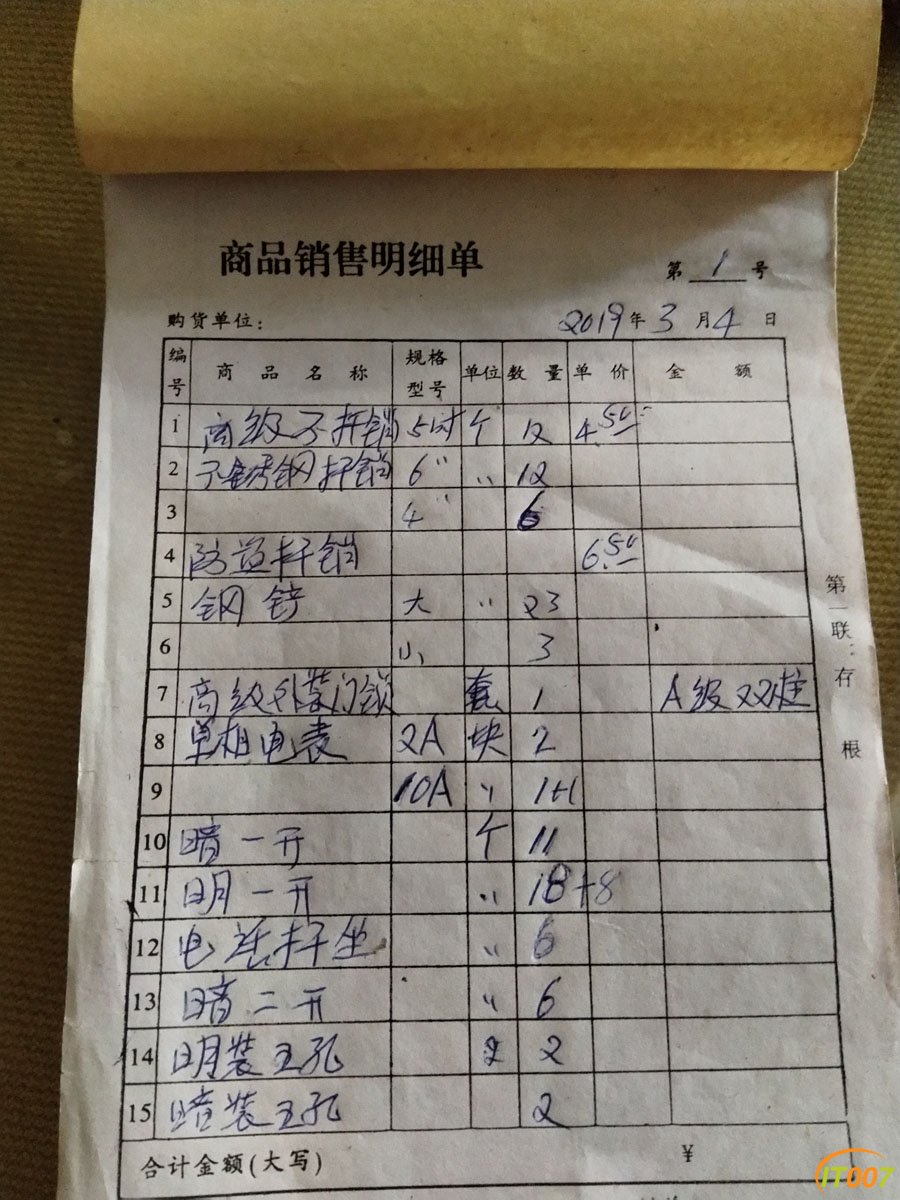 商品销售明细单
第 1 号
购货单位: 2019年3月4日
编号 商品名称 规格型号 单位 数量 单价 金额
1 高级子插销 5吋 个 12 4.50
2 不锈钢插销 6" 〃 12
3 4" 6
4 防盗插销 6.50
5 钢锌 大 〃 23
6 小 3
7 高级外装门锁 套 1 A级双柱
8 单相电表 2A 块 2
9 10A 〃 1+1
10 暗一开 个 11
11 明一开 〃 18+8
12 电话插坐 〃 6
13 暗二开 〃 6
14 明装五孔 2 2
15 暗装五孔 2
合计金额(大写) ¥
第一联:存根
IT007